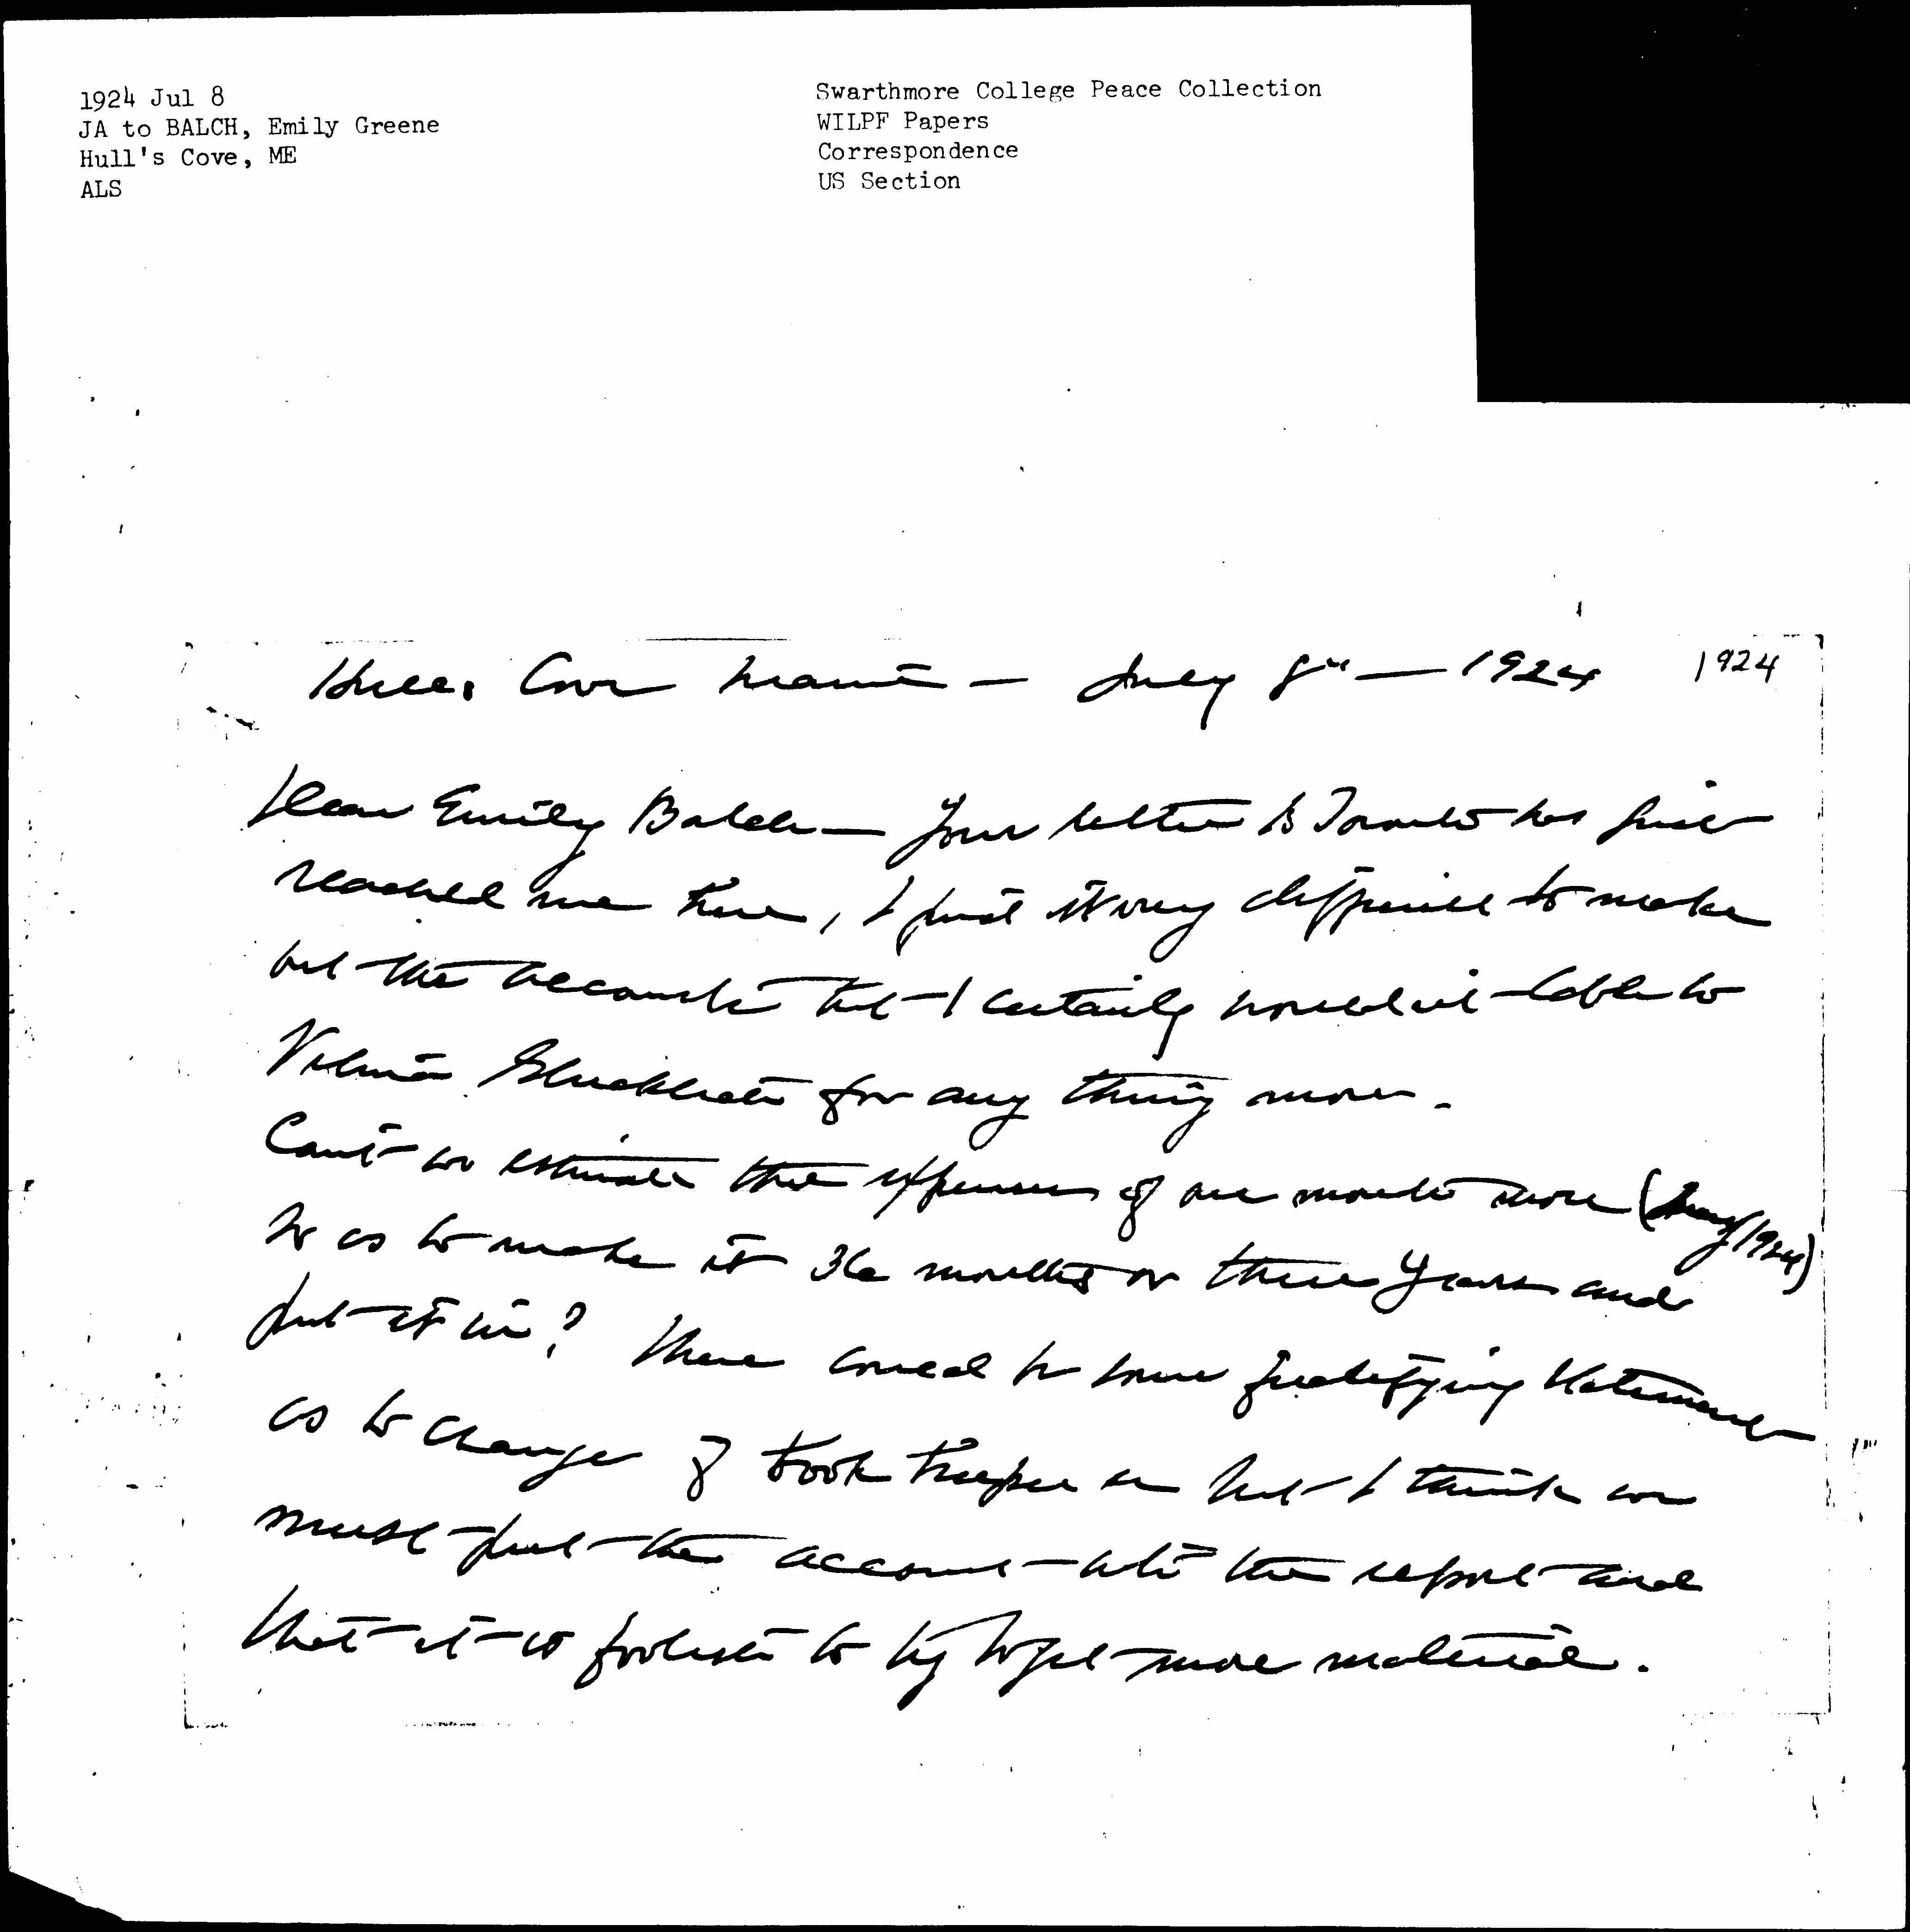 1924 Jul 8
JA to BALCH, Emily Greene
Hull's Cove, ME
ALS
Swarthmore College Peace Collection
WILPF Papers
Correspondence
US Section
Hulls Cove Maine — July 8" — 1924
1924
Dear Emily Balch — Your letter to Toronto has just
reached me here, I find it very difficult to make
out the accounts but I certainly would not cable to
Vilma Glucklich for any thing more.
Can't we estimate the expenses of one month more (May 1924)
so as to make it 36 months or three years and
put it in? There could be some qualifying statement
as to change of book keeper but I think we
must put the account into the report and
that it is foolish to try to get more material.